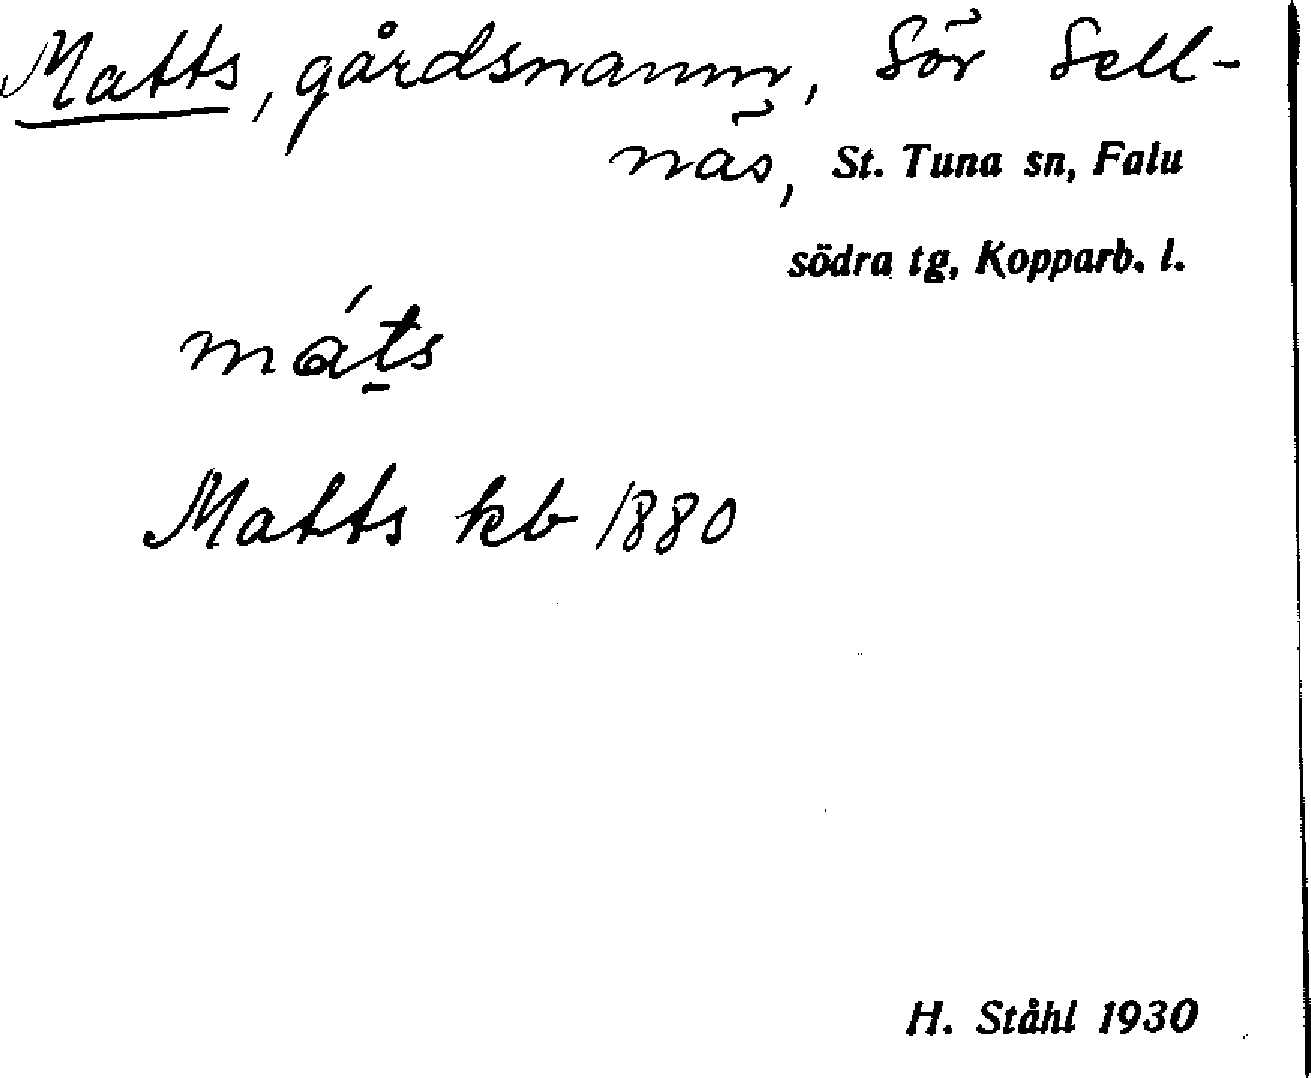 Matts, gårdsnamn, Sör Sell-
näs, St. Tuna sn, Falu
södra tg, Kopparb. l.
mát̠s
Matts kb 1880
H. Ståhl 1930